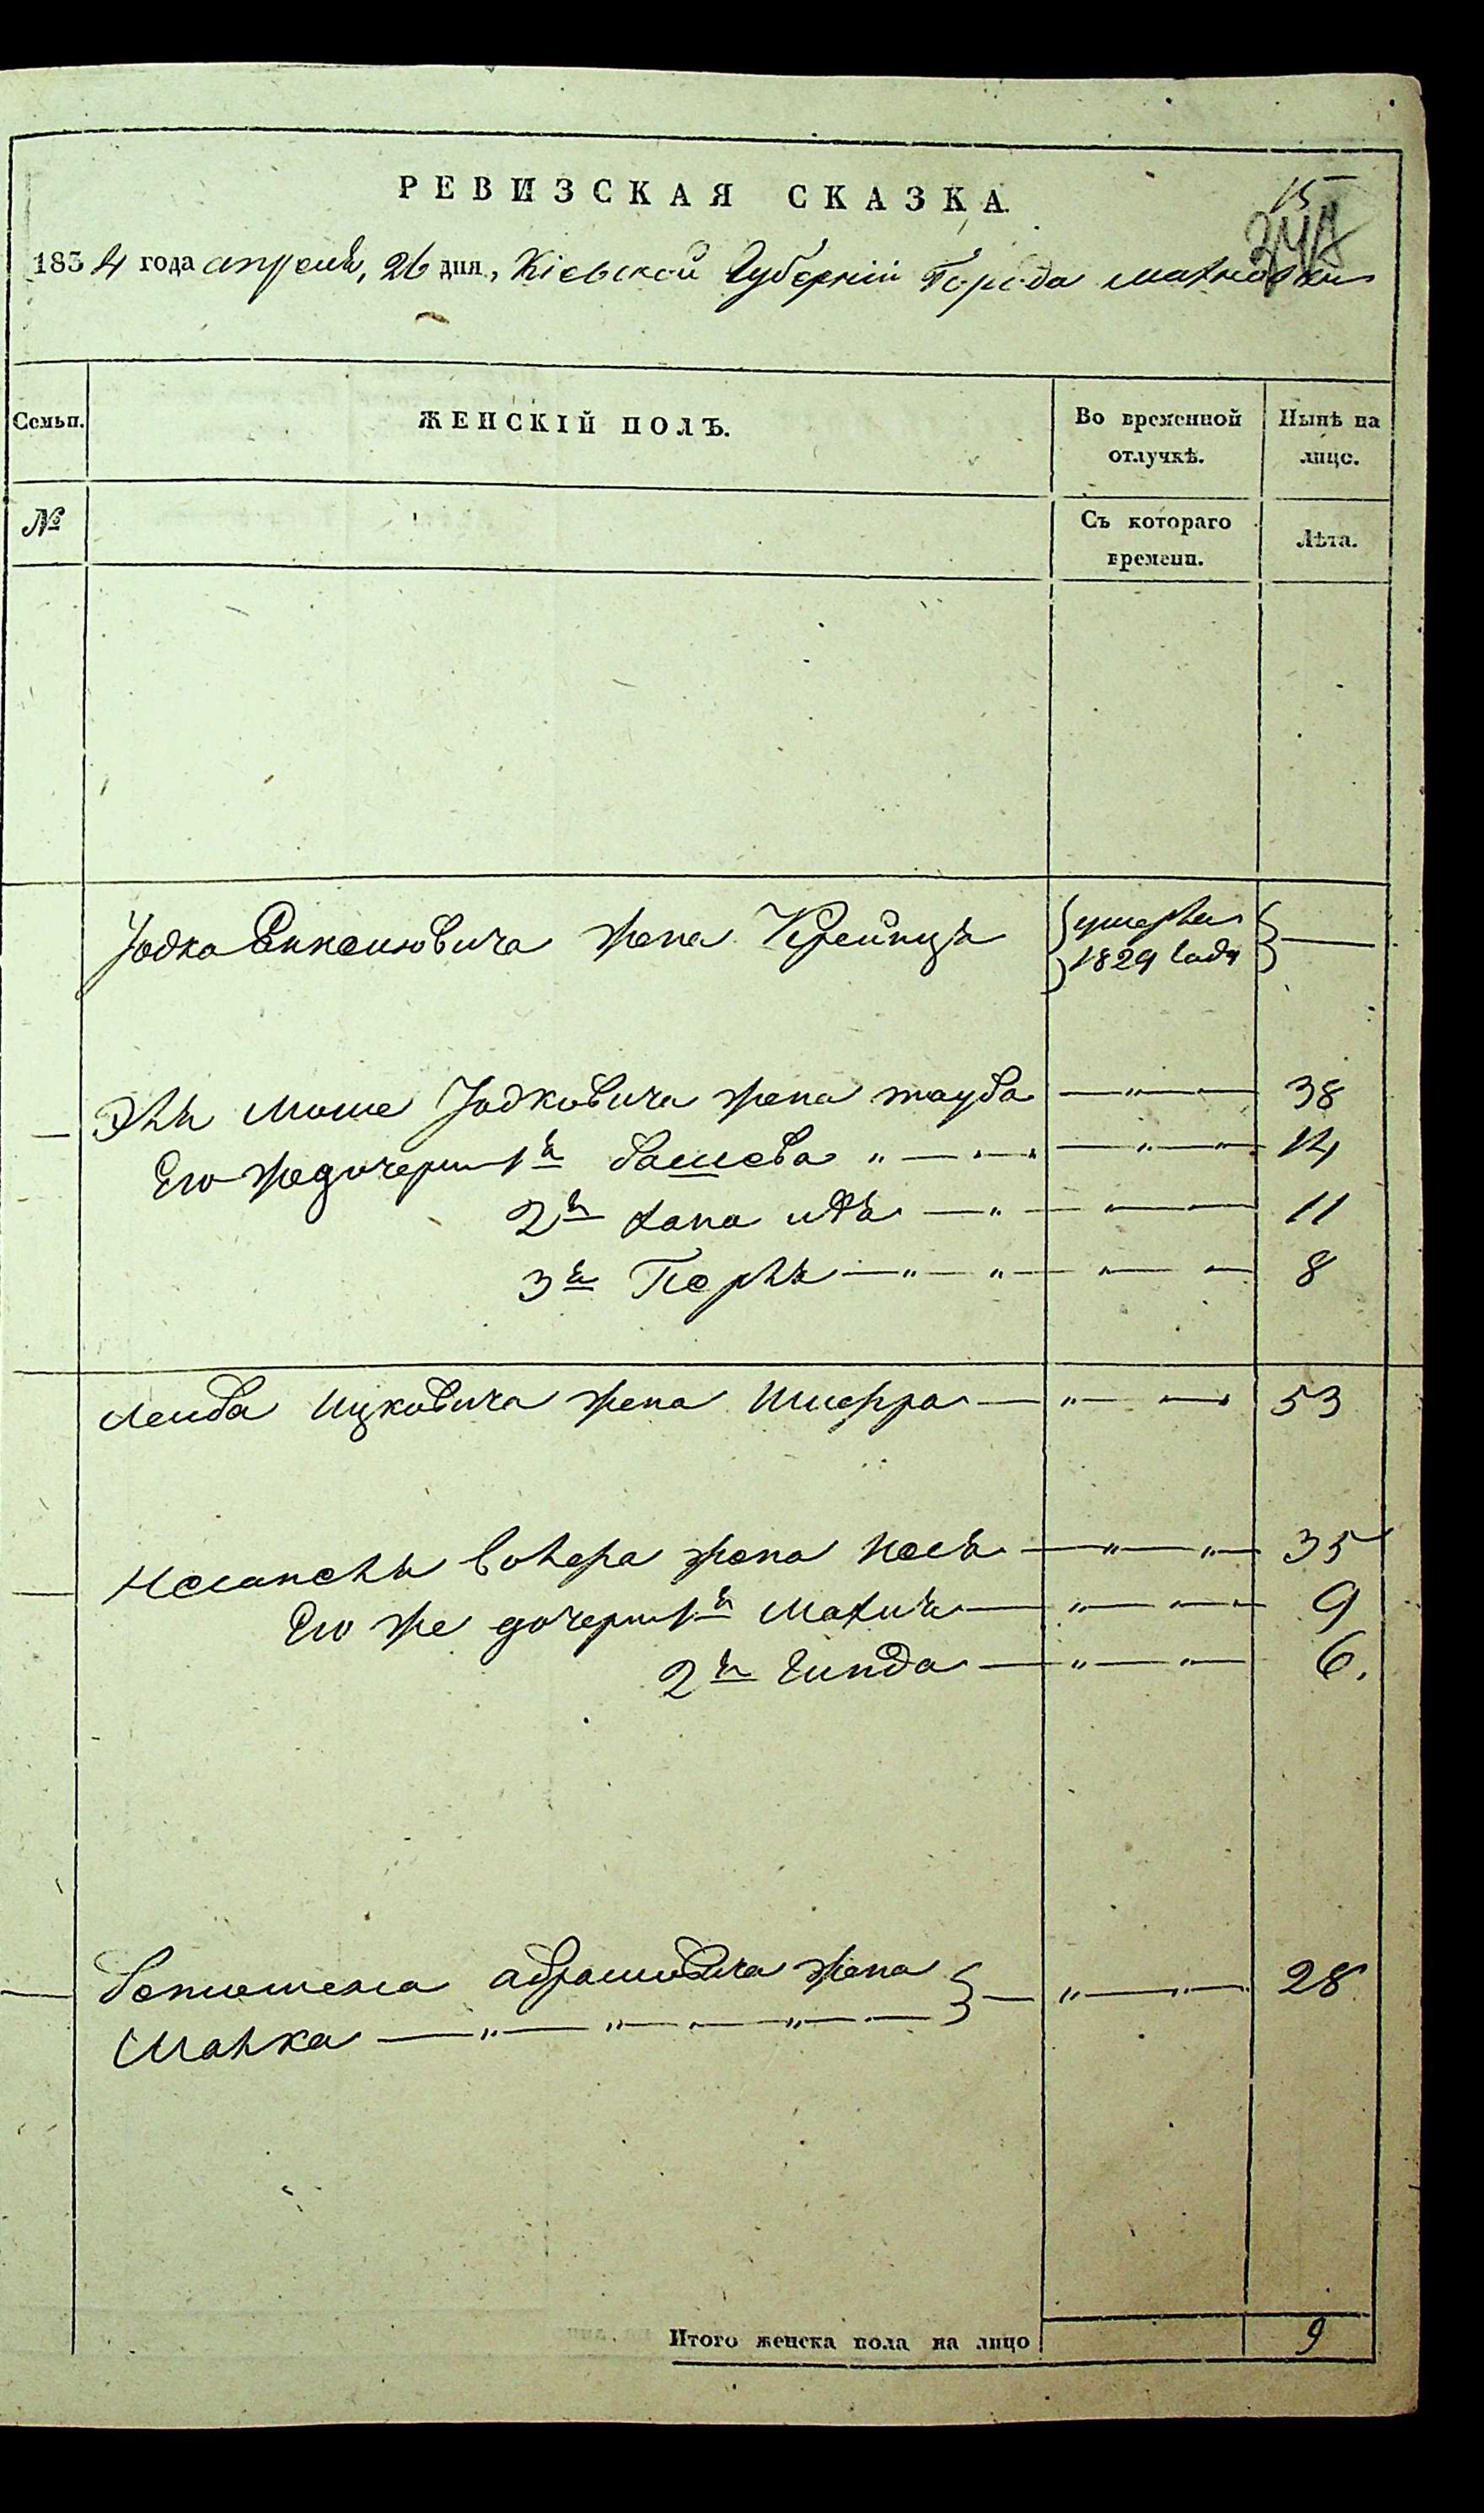 РЕВИЗСКАЯ СКАЗКА
15
1834 года апреля, 26 дня, Кіевской Губерніи Города Махновки
Семьи.
ЖЕНСКІЙ ПОЛЪ.
Во временной отлучкѣ.
Нынѣ на лицо.
№
Съ котораго времени.
Лѣта.
Іодка жена Крейнця умерла 1829 года
Эли Моше Іодковича жена тауба 38
Его же дочери 1я башева 14
2я хана итя 11
3я Перля 8
Лейба Ицковича жена Шифра 53
жена Неся 35
Его же дочери 1я Махля 9
2я Гинда 6.
абрамовича жена 28
Малка
Итого женска пола на лицо 9